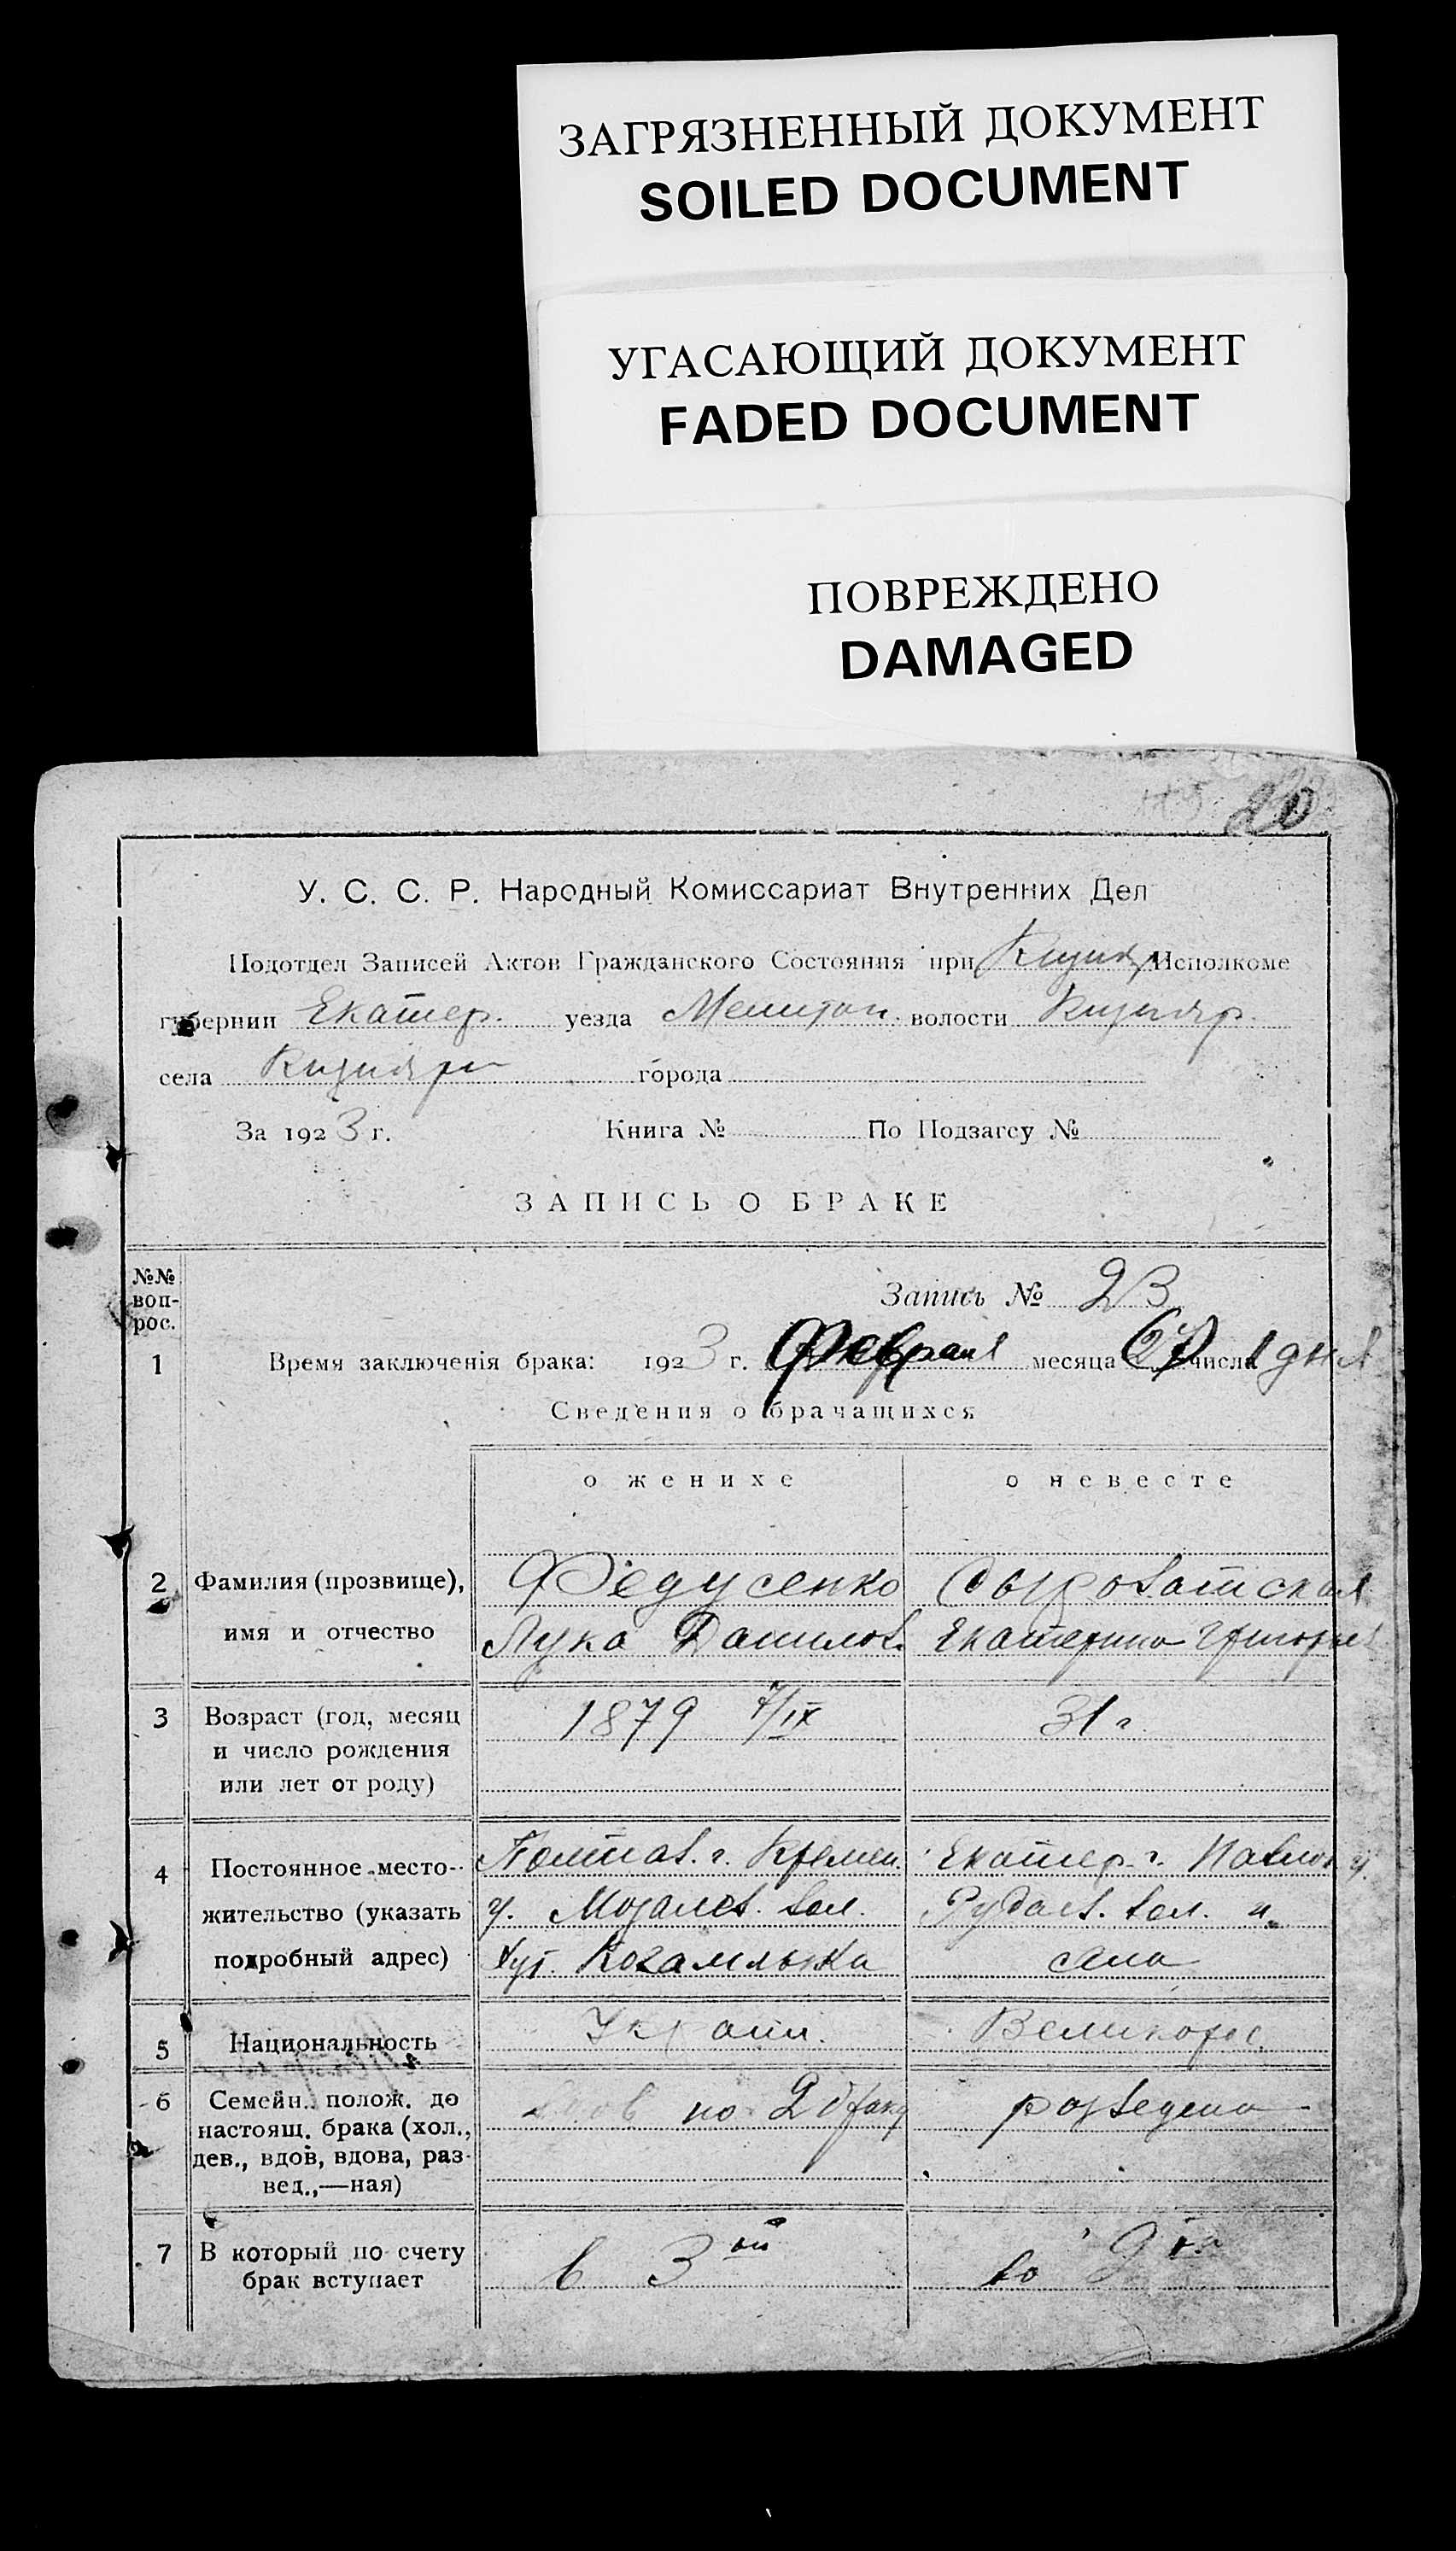 ЗАГРЯЗНЕННЫЙ ДОКУМЕНТ
SOILED DOCUMENT
УГАСАЮЩИЙ ДОКУМЕНТ
FADED DOCUMENT
ПОВРЕЖДЕНО
DAMAGED
20
У. С. С. Р. Народный Комиссариат Внутренних Дел
Подотдел Записей Актов Гражданского Состояния при Кизияр Исполкоме
губернии Екатер. уезда Мелитоп. волости Кизияр.
села Кизияры города
За 1923 г. Книга № По Подзагсу №
ЗАПИСЬ О БРАКЕ
№№ вопрос.
Запись № 23
1 Время заключенія брака: 1923 г. Февраля месяца числа дня
Сведения о брачащихся
о женихе о невесте
2 Фамилия (прозвище), Федусенко Сыроватская
имя и отчество Лука Данилов. Екатерина Григорьев
3 Возраст (год, месяц 1879 7/IX 31 г.
и число рождения
или лет от роду)
4 Постоянное место- Полтав. г. Кремен. Екатер. г. Павлог. у.
жительство (указать у. Мозалев. вол. вол. и
подробный адрес) хут. села
5 Национальность Украин. Великорос.
6 Семейн. полож. до вдов по 2 браку разведена
настоящ. брака (хол.,
дев., вдов, вдова, раз-
вед.,—ная)
7 В который по счету в 3ий во 2ой
брак вступает